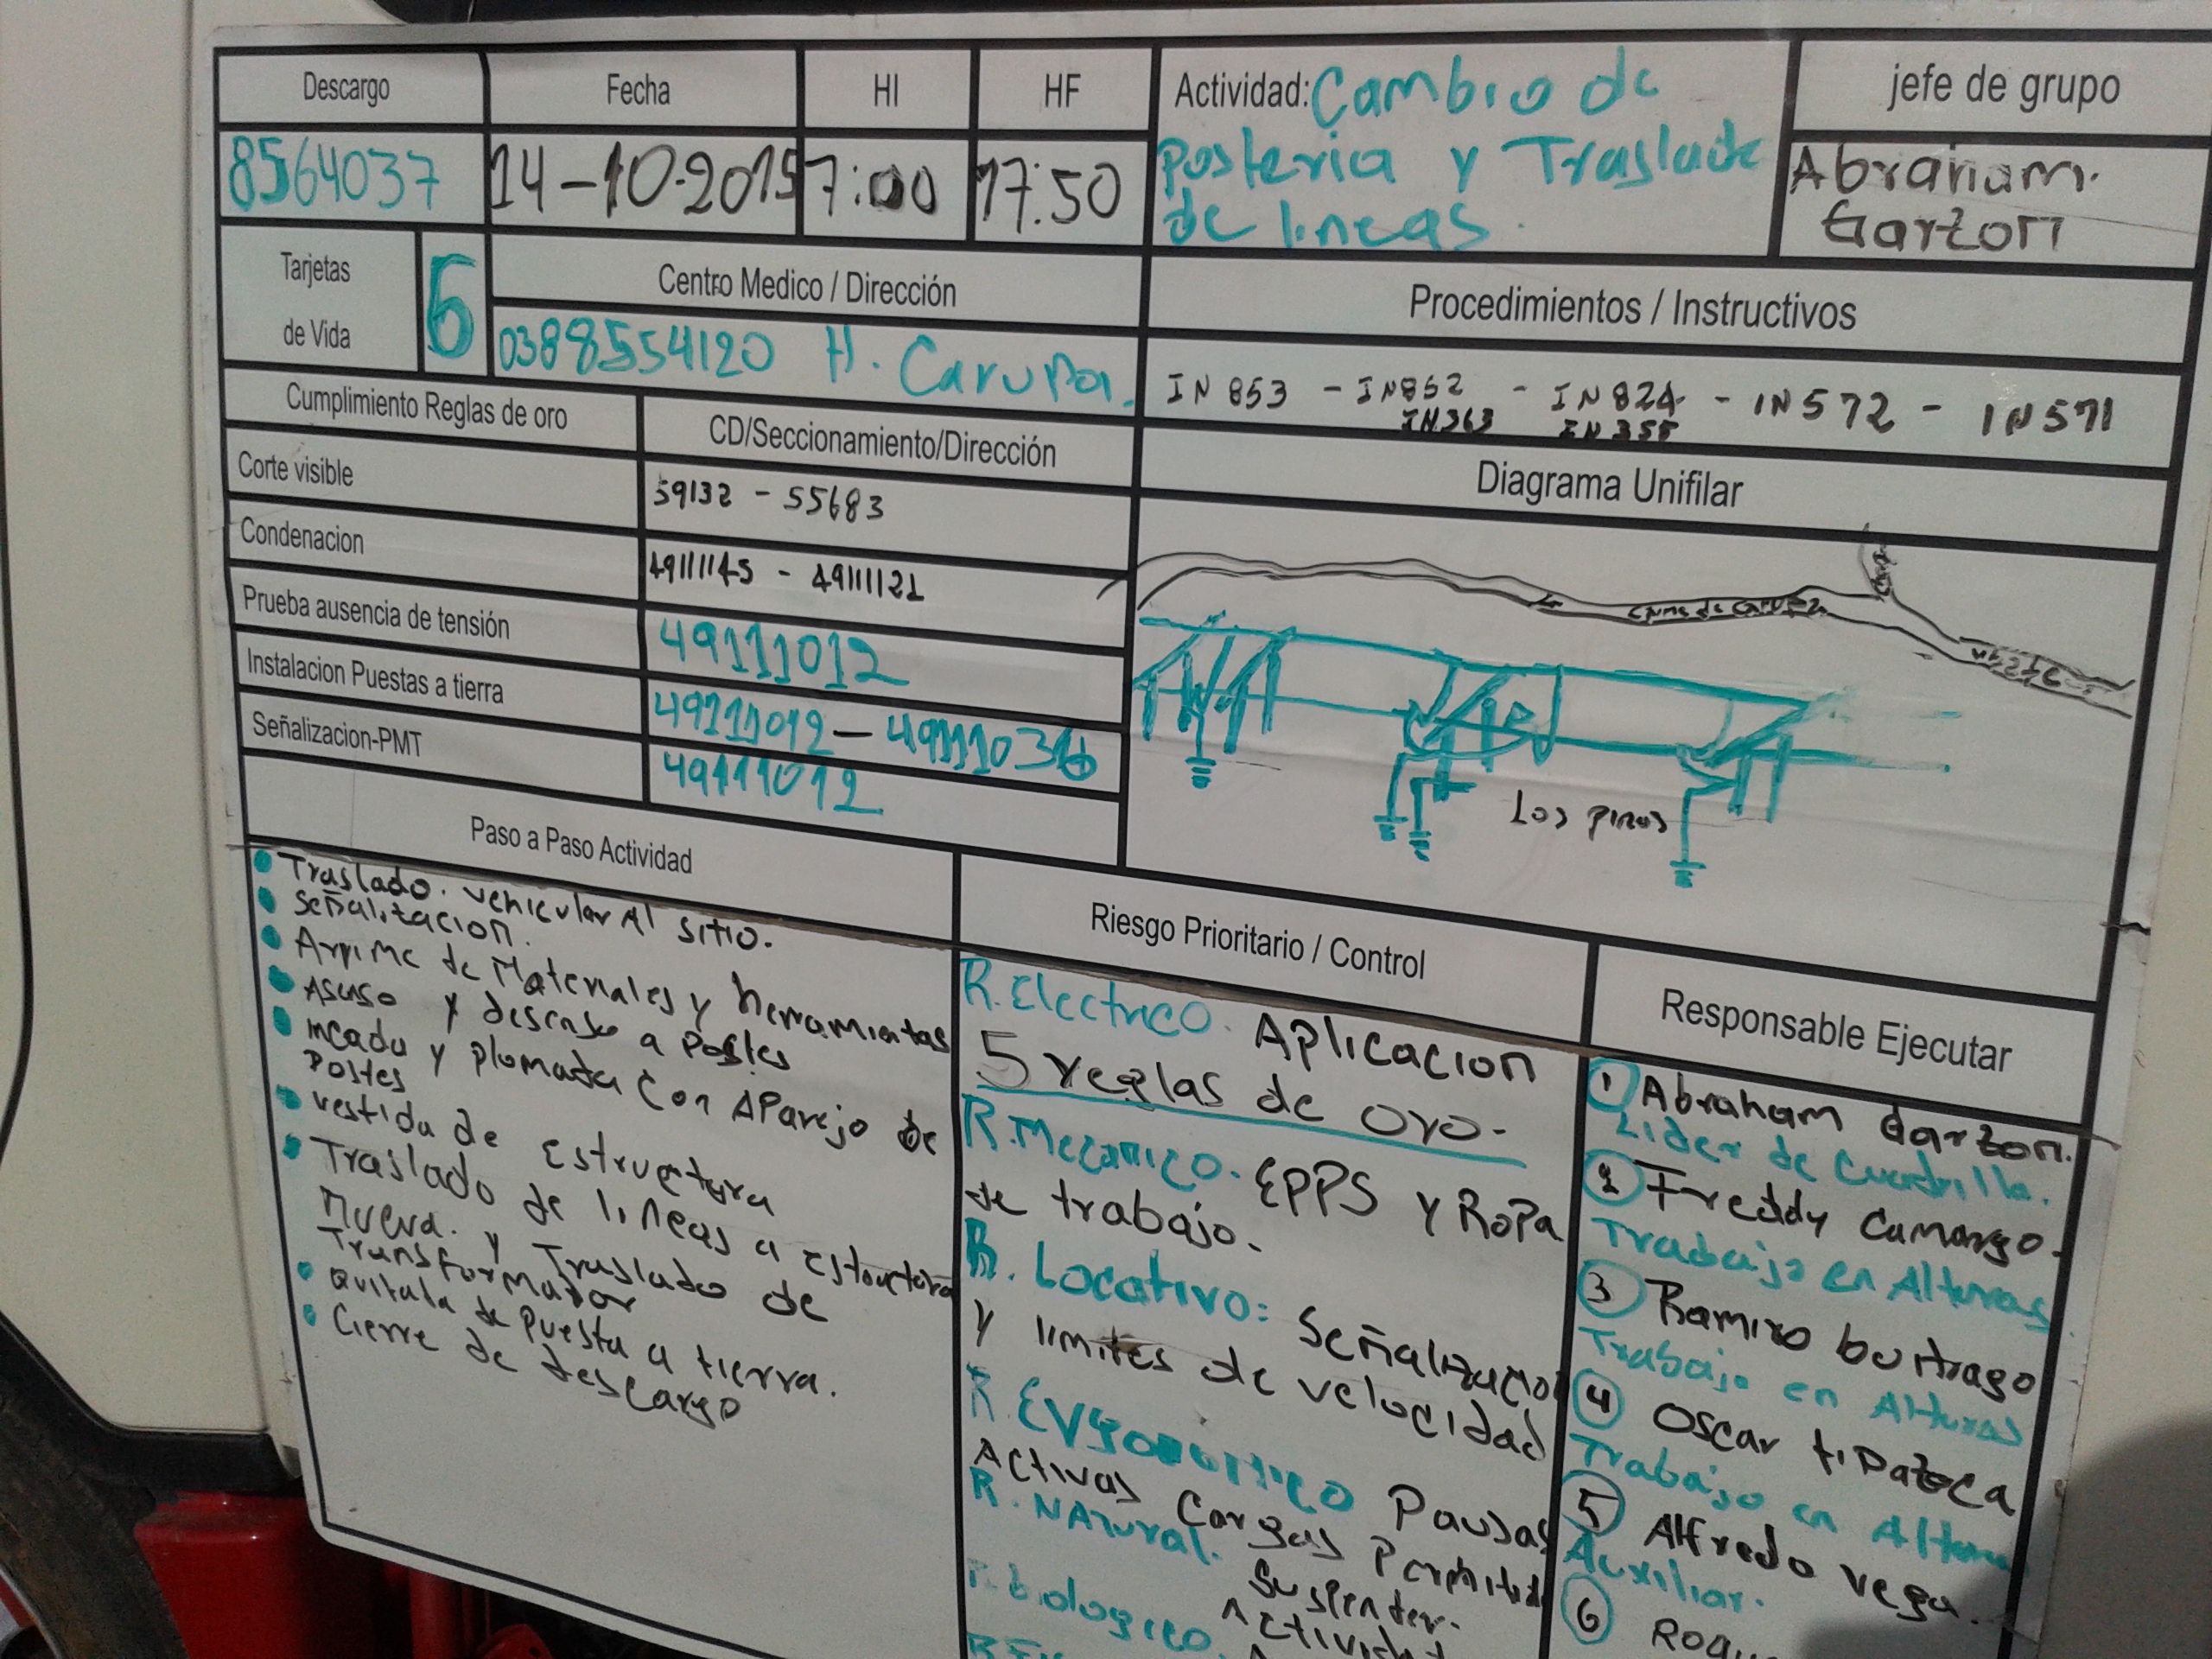 Descargo
Fecha
HI
HF
Actividad: Cambio de
Posteria y Traslado
de lineas.
jefe de grupo
8564037
14-10-2015
7:00
17:50
Abraham.
Garzon
Tarjetas
de Vida
6
Centro Medico / Dirección
0388554120 H. Carupa.
Procedimientos / Instructivos
IN 853 - IN862 - IN 824 - IN 572 - IN 571
IN363 IN 355
Cumplimiento Reglas de oro
CD/Seccionamiento/Dirección
Diagrama Unifilar
Corte visible
59132 - 55683
Condenacion
49111145 - 49111121
Prueba ausencia de tensión
49111012
Instalacion Puestas a tierra
49111012 - 49111036
Señalizacion-PMT
49111012
de Carupa
Los pinos
Paso a Paso Actividad
Traslado. vehicular Al sitio.
Señalizacion.
Arrime de Materiales y herramientas
Asenso y descenso a Postes
incada y plomada Con Aparejo de
Postes
vestida de Estructura
Traslado de lineas a Estructura
Nueva. y Traslado de
Transformador
Quitada de Puesta a tierra.
Cierre de descargo
Riesgo Prioritario / Control
R. Electrico. Aplicacion
5 reglas de oro.
R. Mecanico. EPPS y RoPa
de trabajo.
R. Locativo: Señalizacion
y limites de velocidad
R. Ergonomico Pausas
Activas Cargas Permitidas
R. NAtural. Suspender.
Actividad
R. biologico.
Responsable Ejecutar
1 Abraham Garzon.
Lider de Cuadrilla.
2 Freddy Camargo.
Trabajo en Alturas
3 Ramiro buitrago
Trabajo en Alturas
4 Oscar tipazoca
Trabajo en Alturas
5 Alfredo vega.
Auxiliar.
6